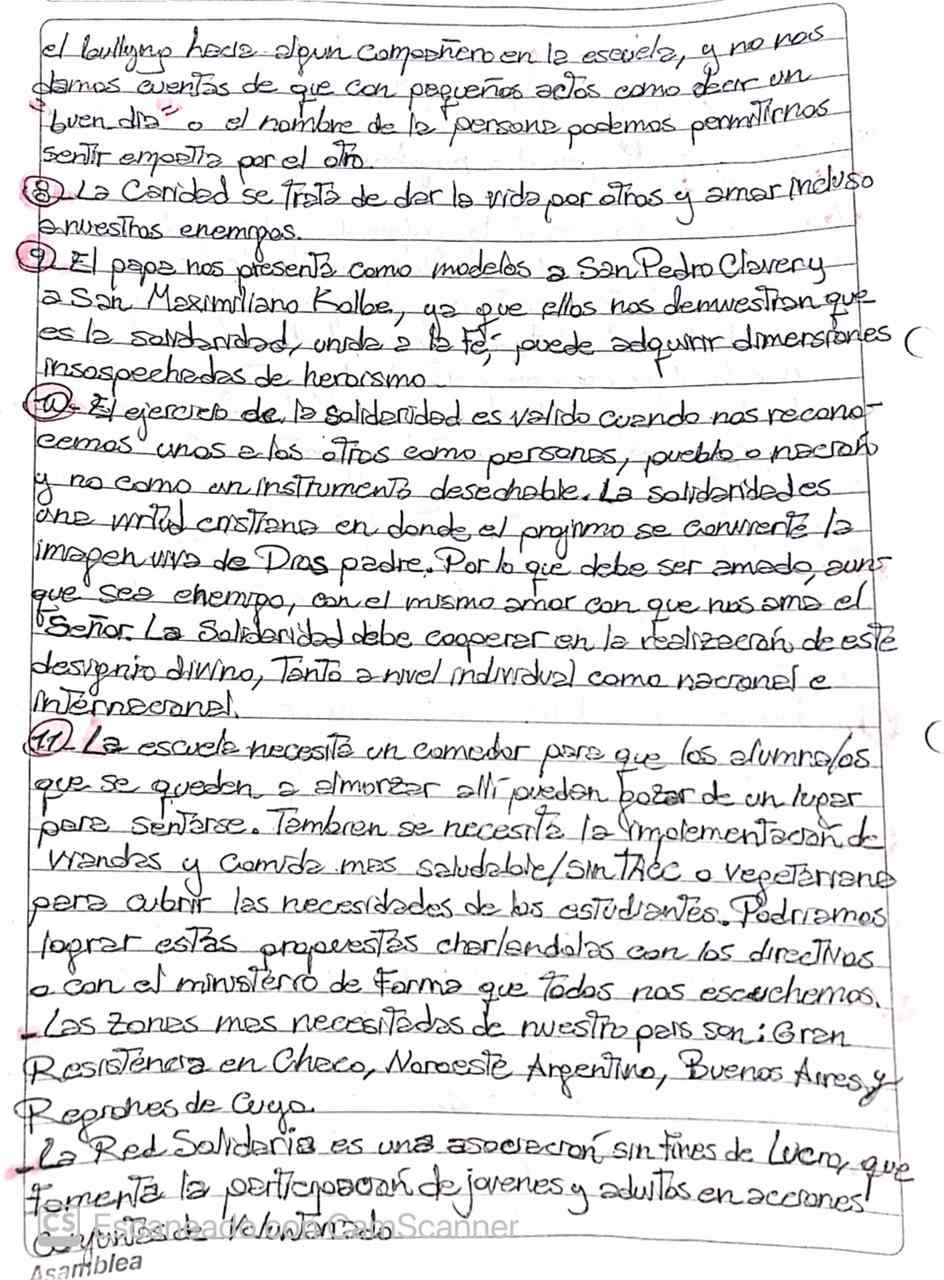 el bullyng hacia algun compañero en la escuela, y no nos
damos cuentas de que con pequeños actos como decir un
"buen dia" o el nombre de la persona podemos permitirnos
sentir empatia por el otro.
8- La Caridad se trata de dar la vida por otros y amar incluso
a nuestros enemigos.
9- El papa nos presenta como modelos a San Pedro Claver y
a San Maximiliano Kolbe, ya que ellos nos demuestran que
es la solidaridad, unida a la Fé, puede adquirir dimensiones
insospechadas de heroismo.
10- El ejercicio de la solidaridad es valido cuando nos recono-
cemos unos a los otros como personas, pueblo o nación
y no como un instrumento desechable. La solidaridad es
una virtud cristiana en donde el projimo se convierte la
imagen viva de Dios padre. Por lo que debe ser amado, aun-
que sea enemigo, con el mismo amor con que nos ama el
Señor. La Solidaridad debe cooperar en la realización de este
designio divino, tanto a nivel individual como nacional e
internacional.
11- La escuela necesita un comedor para que los alumno/os
que se queden a almorzar allí puedan gozar de un lugar
para sentarse. Tambien se necesita la implementación de
viandas y comida mas saludable/sin TACC o vegetariana
para cubrir las necesidades de los estudiantes. Podriamos
lograr estas propuestas charlandolas con los directivos
o con el ministerio de forma que todos nos escuchemos.
- Las zonas mas necesitadas de nuestro pais son: Gran
Resistencia en Chaco, Noroeste Argentino, Buenos Aires y
Regiones de Cuyo.
- La Red Solidaria es una asociación sin fines de lucro, que
fomenta la participación de jovenes y adultos en acciones
conjuntas de Voluntariado
CS Escaneado con CamScanner
Asamblea